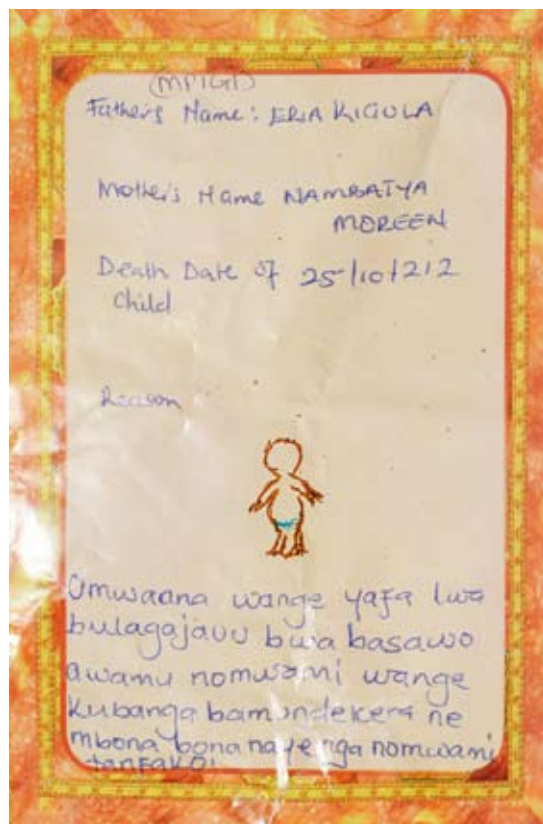 (MPIGI)
Father's Name: ERIA KIGULA
Mother's Name NAMBATYA
MOREEN
Death Date of 25/10/212
Child
Reason
Omwaana wange yafa lwa
bulagajavu bwa basawo
awamu nomwami wange
Kubanga bamundekera ne
mbona bona naye nga nomwami
tanfako!